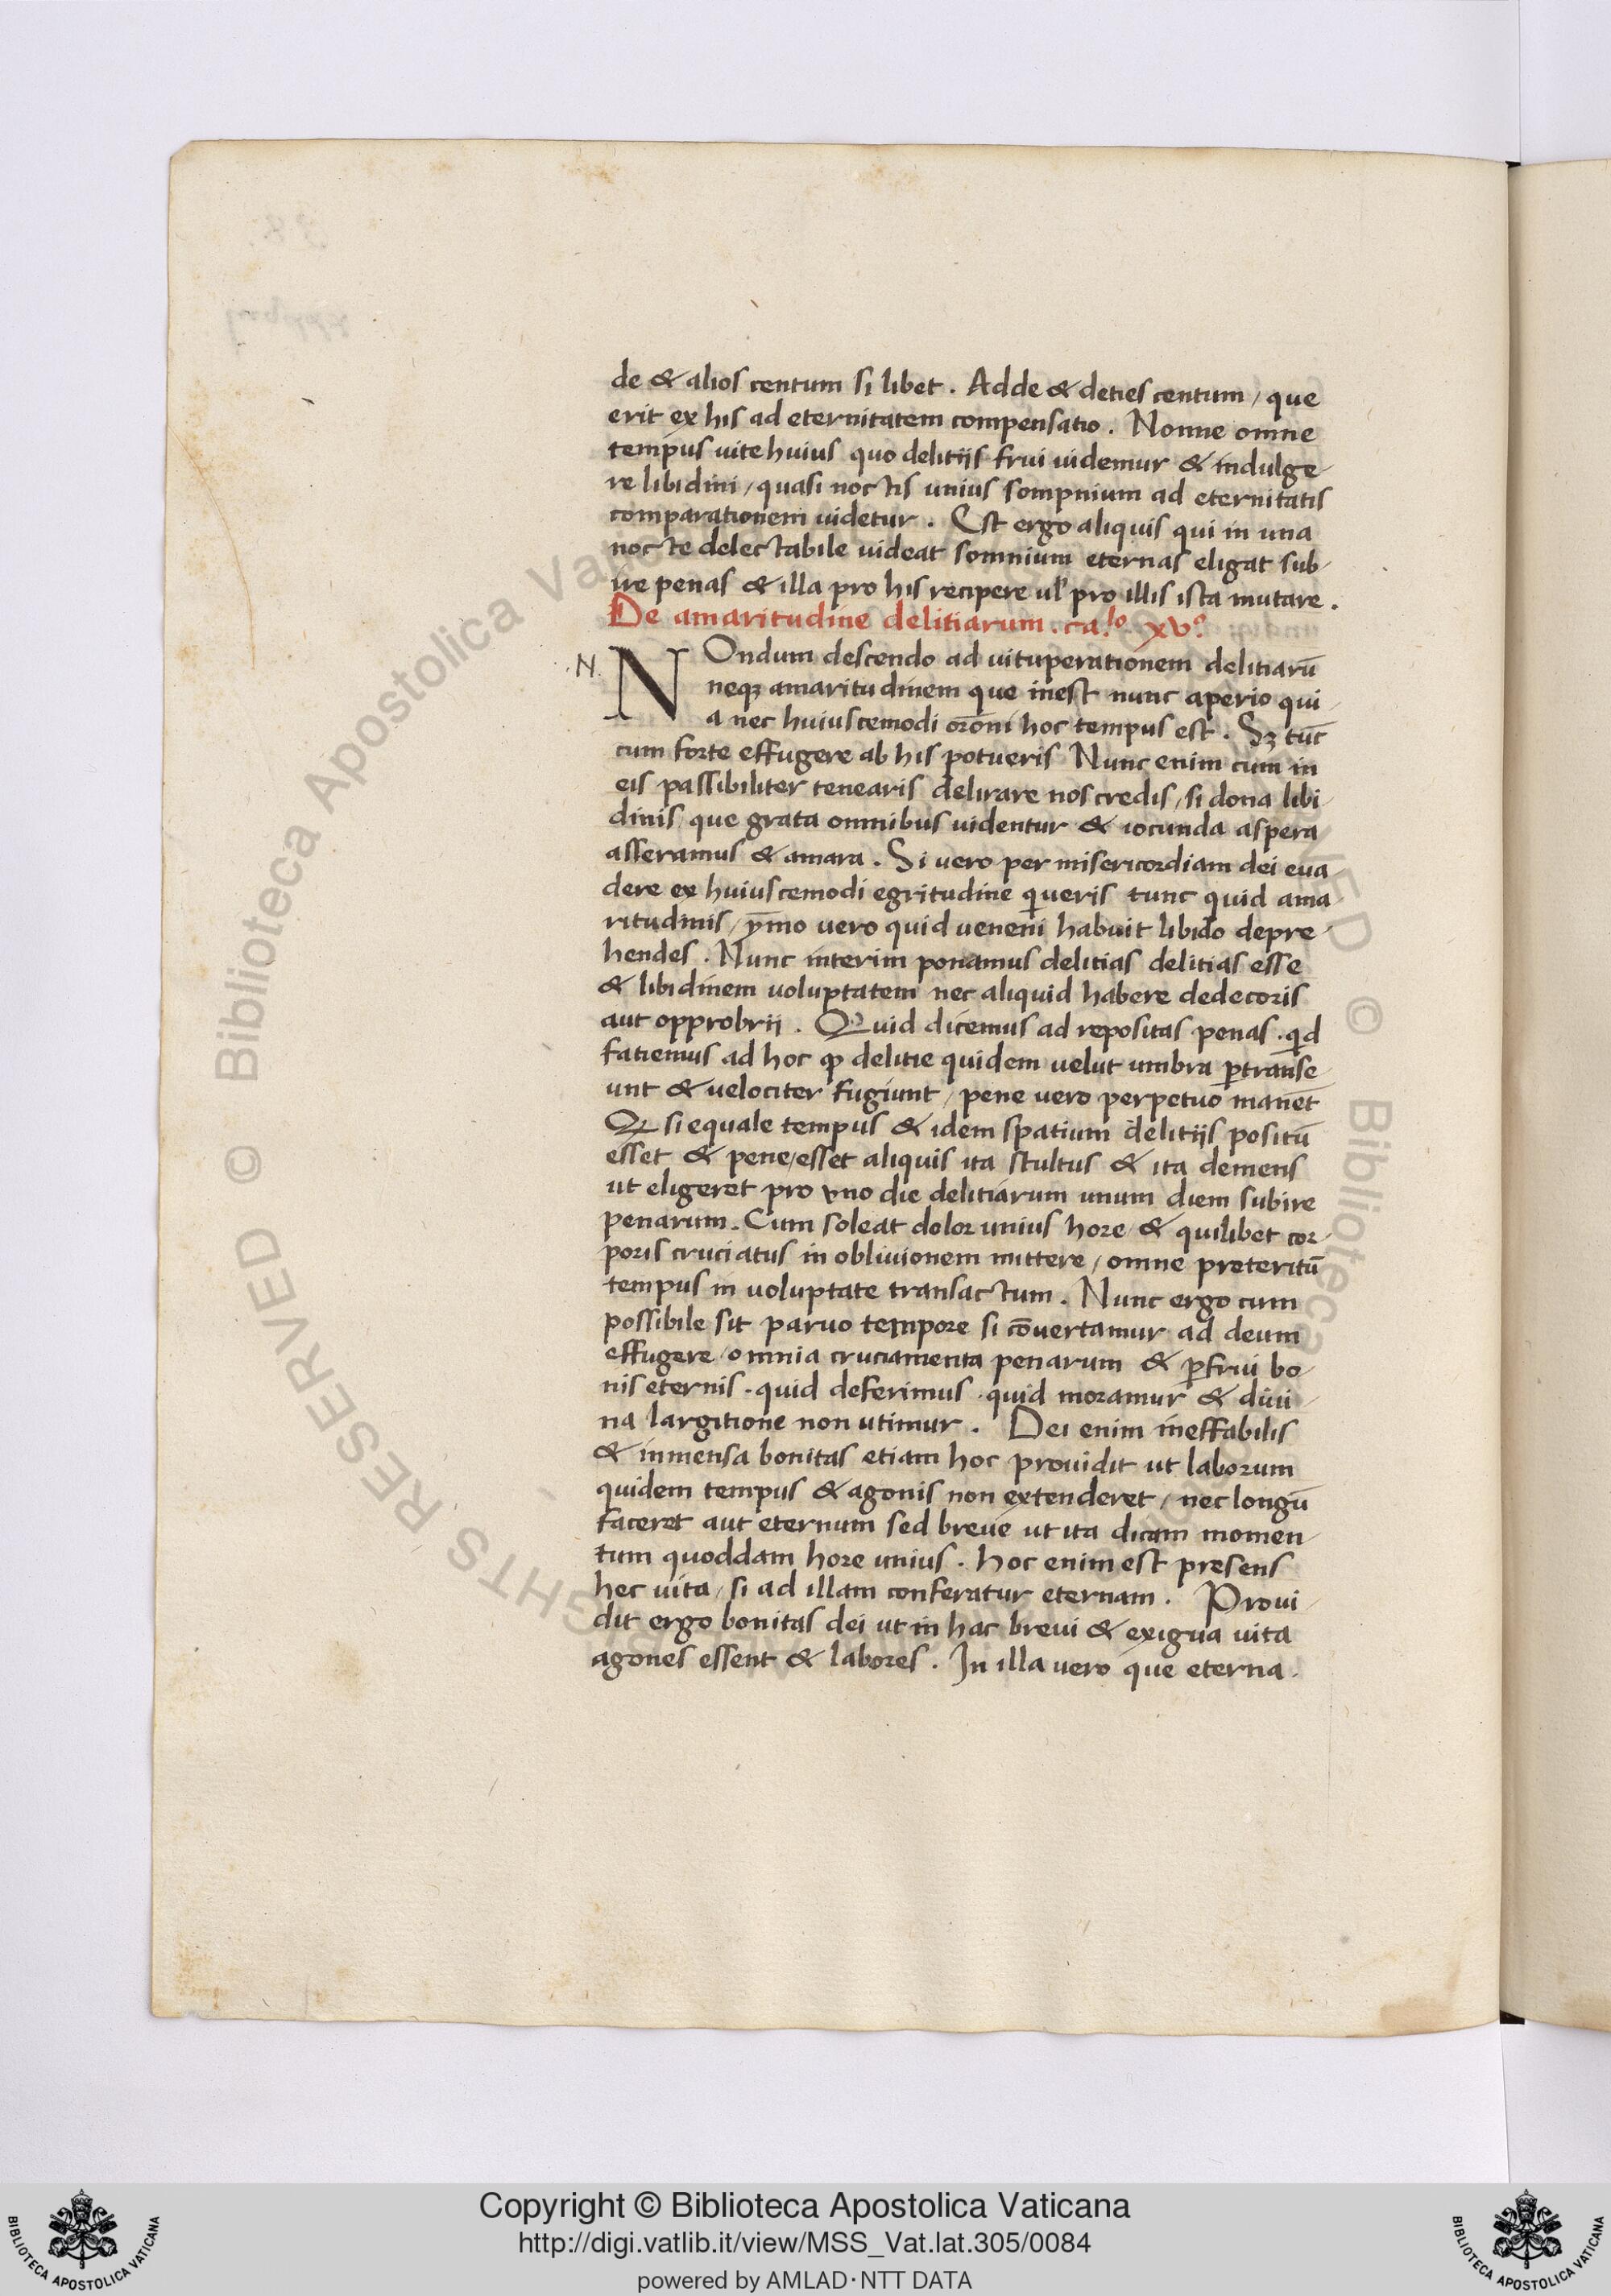 de & alios centum si libet. Adde & deties centum / que
erit ex his ad eternitatem compensatio. Nonne omne
tempus uite huius quo delitijs frui uidemur & indulge-
re libidini / quasi noctis unius sompnium ad eternitatis
comparationem uidetur. Est ergo aliquis qui in una
nocte delectabile uideat somnium eternas eligat sub-
ire penas & illa pro his recipere ul' pro illis ista mutare.
De amaritudine delitiarum. ca.lo xvº
.N.
NOndum descendo ad uituperationem delitiarū
neqꝫ amaritudinem que inest nunc aperio qui-
a nec huiuscemodi orōni hoc tempus est. Sꝫ tūc
cum forte effugere ab his potueris Nunc enim cum in
eis passibiliter tenearis delirare nos credis / si dona libi-
dinis que grata omnibus uidentur & iocunda aspera
asseramus & amara. Si vero per misericordiam dei eua-
dere ex huiuscemodi egritudine q̇ueris tunc quid ama-
ritudinis / ȳmo uero quid ueneni habuit libido depre-
hendes. Nunc interim ponamus delitias delitias esse
& libidinem uoluptatem nec aliquid habere dedecoris
aut opprobrii. Quid dicemus ad repositas penas. qid
fatiemus ad hoc ꝙ delitie quidem uelut umbra ꝑtranse-
unt & velociter fugiunt / pene vero perpetuo manēt
Ꝙ si equale tempus & idem spatium delitijs positū
esset & pene / esset aliquis ita stultus & ita demens
ut eligeret pro vno die delitiarum unum diem subire
penarum. Cum soleat dolor unius hore & quilibet cor-
poris cruciatus in obliuionem mittere / omne preteritū
tempus in uoluptate transactum. Nunc ergo cum
possibile sit paruo tempore si cōuertamur ad deum
effugere omnia cruciamenta penarum & ꝑfrui bo-
nis eternis. quid deferimus. quid moramur & diui-
na largitione non utimur. Dei enim ineffabilis
& inmensa bonitas etiam hoc prouidit ut laborum
quidem tempus & agonis non extenderet / nec longū
faceret aut eternum sed breue ut ita dicam momen-
tum quoddam hore unius. hoc enim est presens
hec uita / si ad illam conferatur eternam. Proui-
dit ergo bonitas dei ut in hac breui & exigua uita
agones essent & labores. In illa vero que eterna.
Copyright © Biblioteca Apostolica Vaticana
http://digi.vatlib.it/view/MSS_Vat.lat.305/0084
powered by AMLAD·NTT DATA